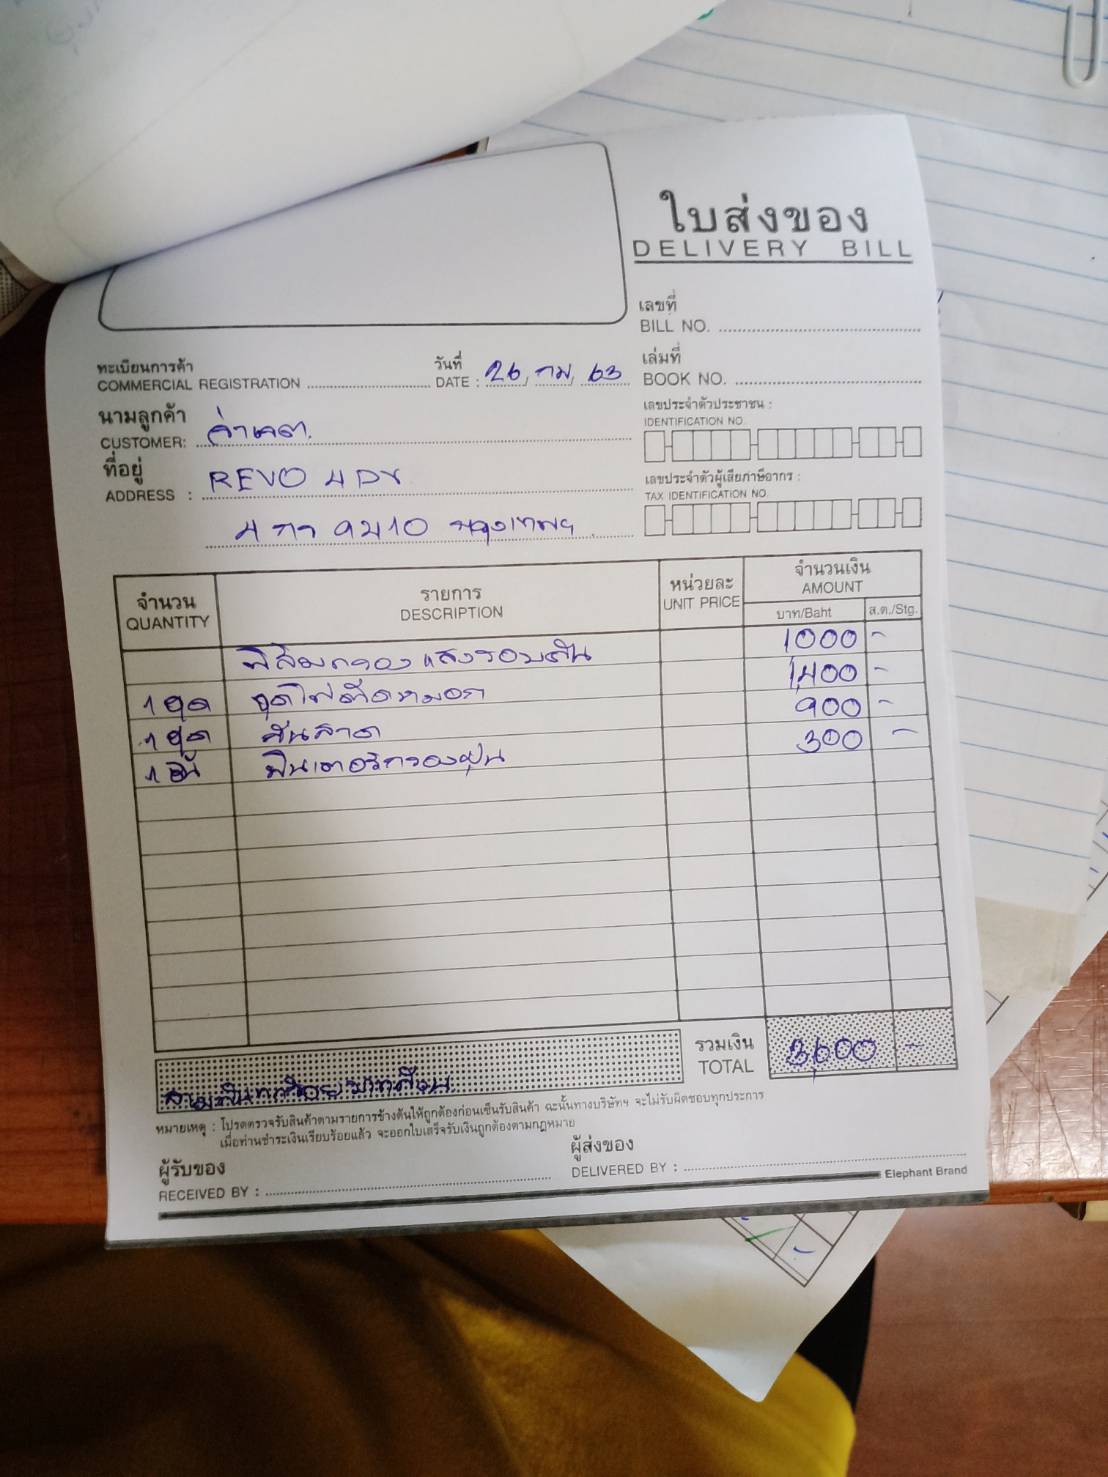 ใบส่งของ
DELIVERY BILL
เลขที่
BILL NO.
ทะเบียนการค้า
COMMERCIAL REGISTRATION
วันที่
DATE : 26, กพ, 63
เล่มที่
BOOK NO.
นามลูกค้า
CUSTOMER:
เลขประจำตัวประชาชน :
IDENTIFICATION NO.
ที่อยู่
ADDRESS : REVO 4 DR
เลขประจำตัวผู้เสียภาษีอากร :
TAX IDENTIFICATION NO.
4 กา 9210 กรุงเทพฯ
จำนวน
QUANTITY
รายการ
DESCRIPTION
หน่วยละ
UNIT PRICE
จำนวนเงิน
AMOUNT
บาท/Baht
ส.ต./Stg.
ฟิล์มกรองแสงรอบคัน 1000 -
1 ชุด ชุดไฟตัดหมอก 1,400 -
1 ชุด คันลาด 900 -
1 อัน ฟินเตอร์กรองฝุ่น 300 -
รวมเงิน
TOTAL
3,600 -
สามพันหกร้อยบาทถ้วน
หมายเหตุ : โปรดตรวจรับสินค้าตามรายการข้างต้นให้ถูกต้องก่อนเซ็นรับสินค้า ฉะนั้นทางบริษัทฯ จะไม่รับผิดชอบทุกประการ
เมื่อท่านชำระเงินเรียบร้อยแล้ว จะออกใบเสร็จรับเงินถูกต้องตามกฎหมาย
ผู้รับของ
RECEIVED BY :
ผู้ส่งของ
DELIVERED BY :
Elephant Brand